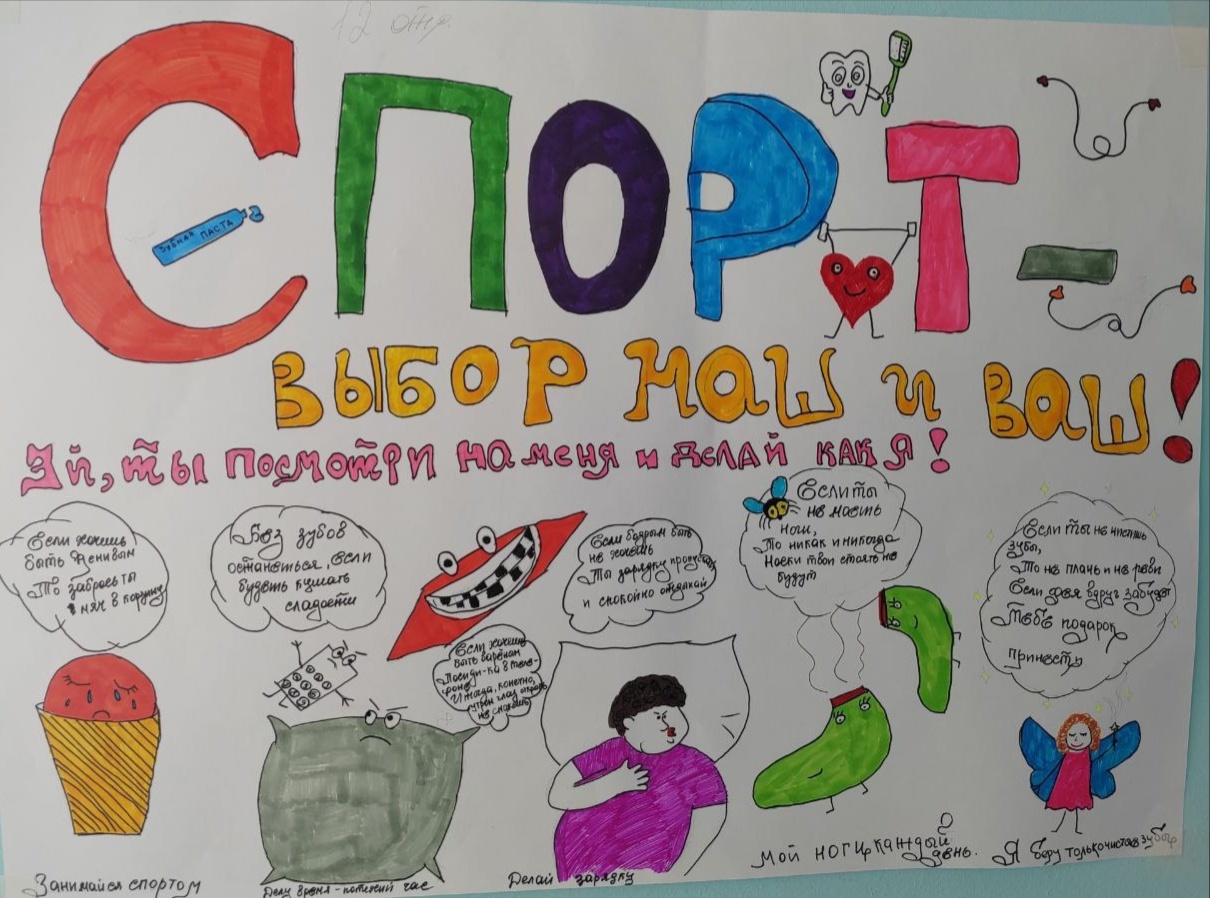 12 отр.
СПОРТ-
ЗУБНАЯ ПАСТА
ВЫБОР НАШ И ВАШ!
ЭЙ, ТЫ ПОСМОТРИ НА МЕНЯ И ДЕЛАЙ КАК Я!
Если хочешь
быть ленивым
То забрось ты
мяч в корзину
Без зубов
останешься, если
будешь кушать
сладости
Если бодрым быть
не хочешь
Ты зарядку
и спокойно отдыхай
Если хочешь
быть
Посиди-ка в теле-
фоне
И тогда, конечно,
утром глаз открыть
не сможешь
Если ты
не мыть
ноги,
То никак и никогда
Носки твои стоять не
будут
Если ты не чистишь
зубы,
То не плачь и не реви
Если фея вдруг забудет
Тебе подарок
принести
Занимайся спортом
Делу время - потехе час
Делай зарядку
Мой ноги каждый
день.
Я беру только чистые зубы